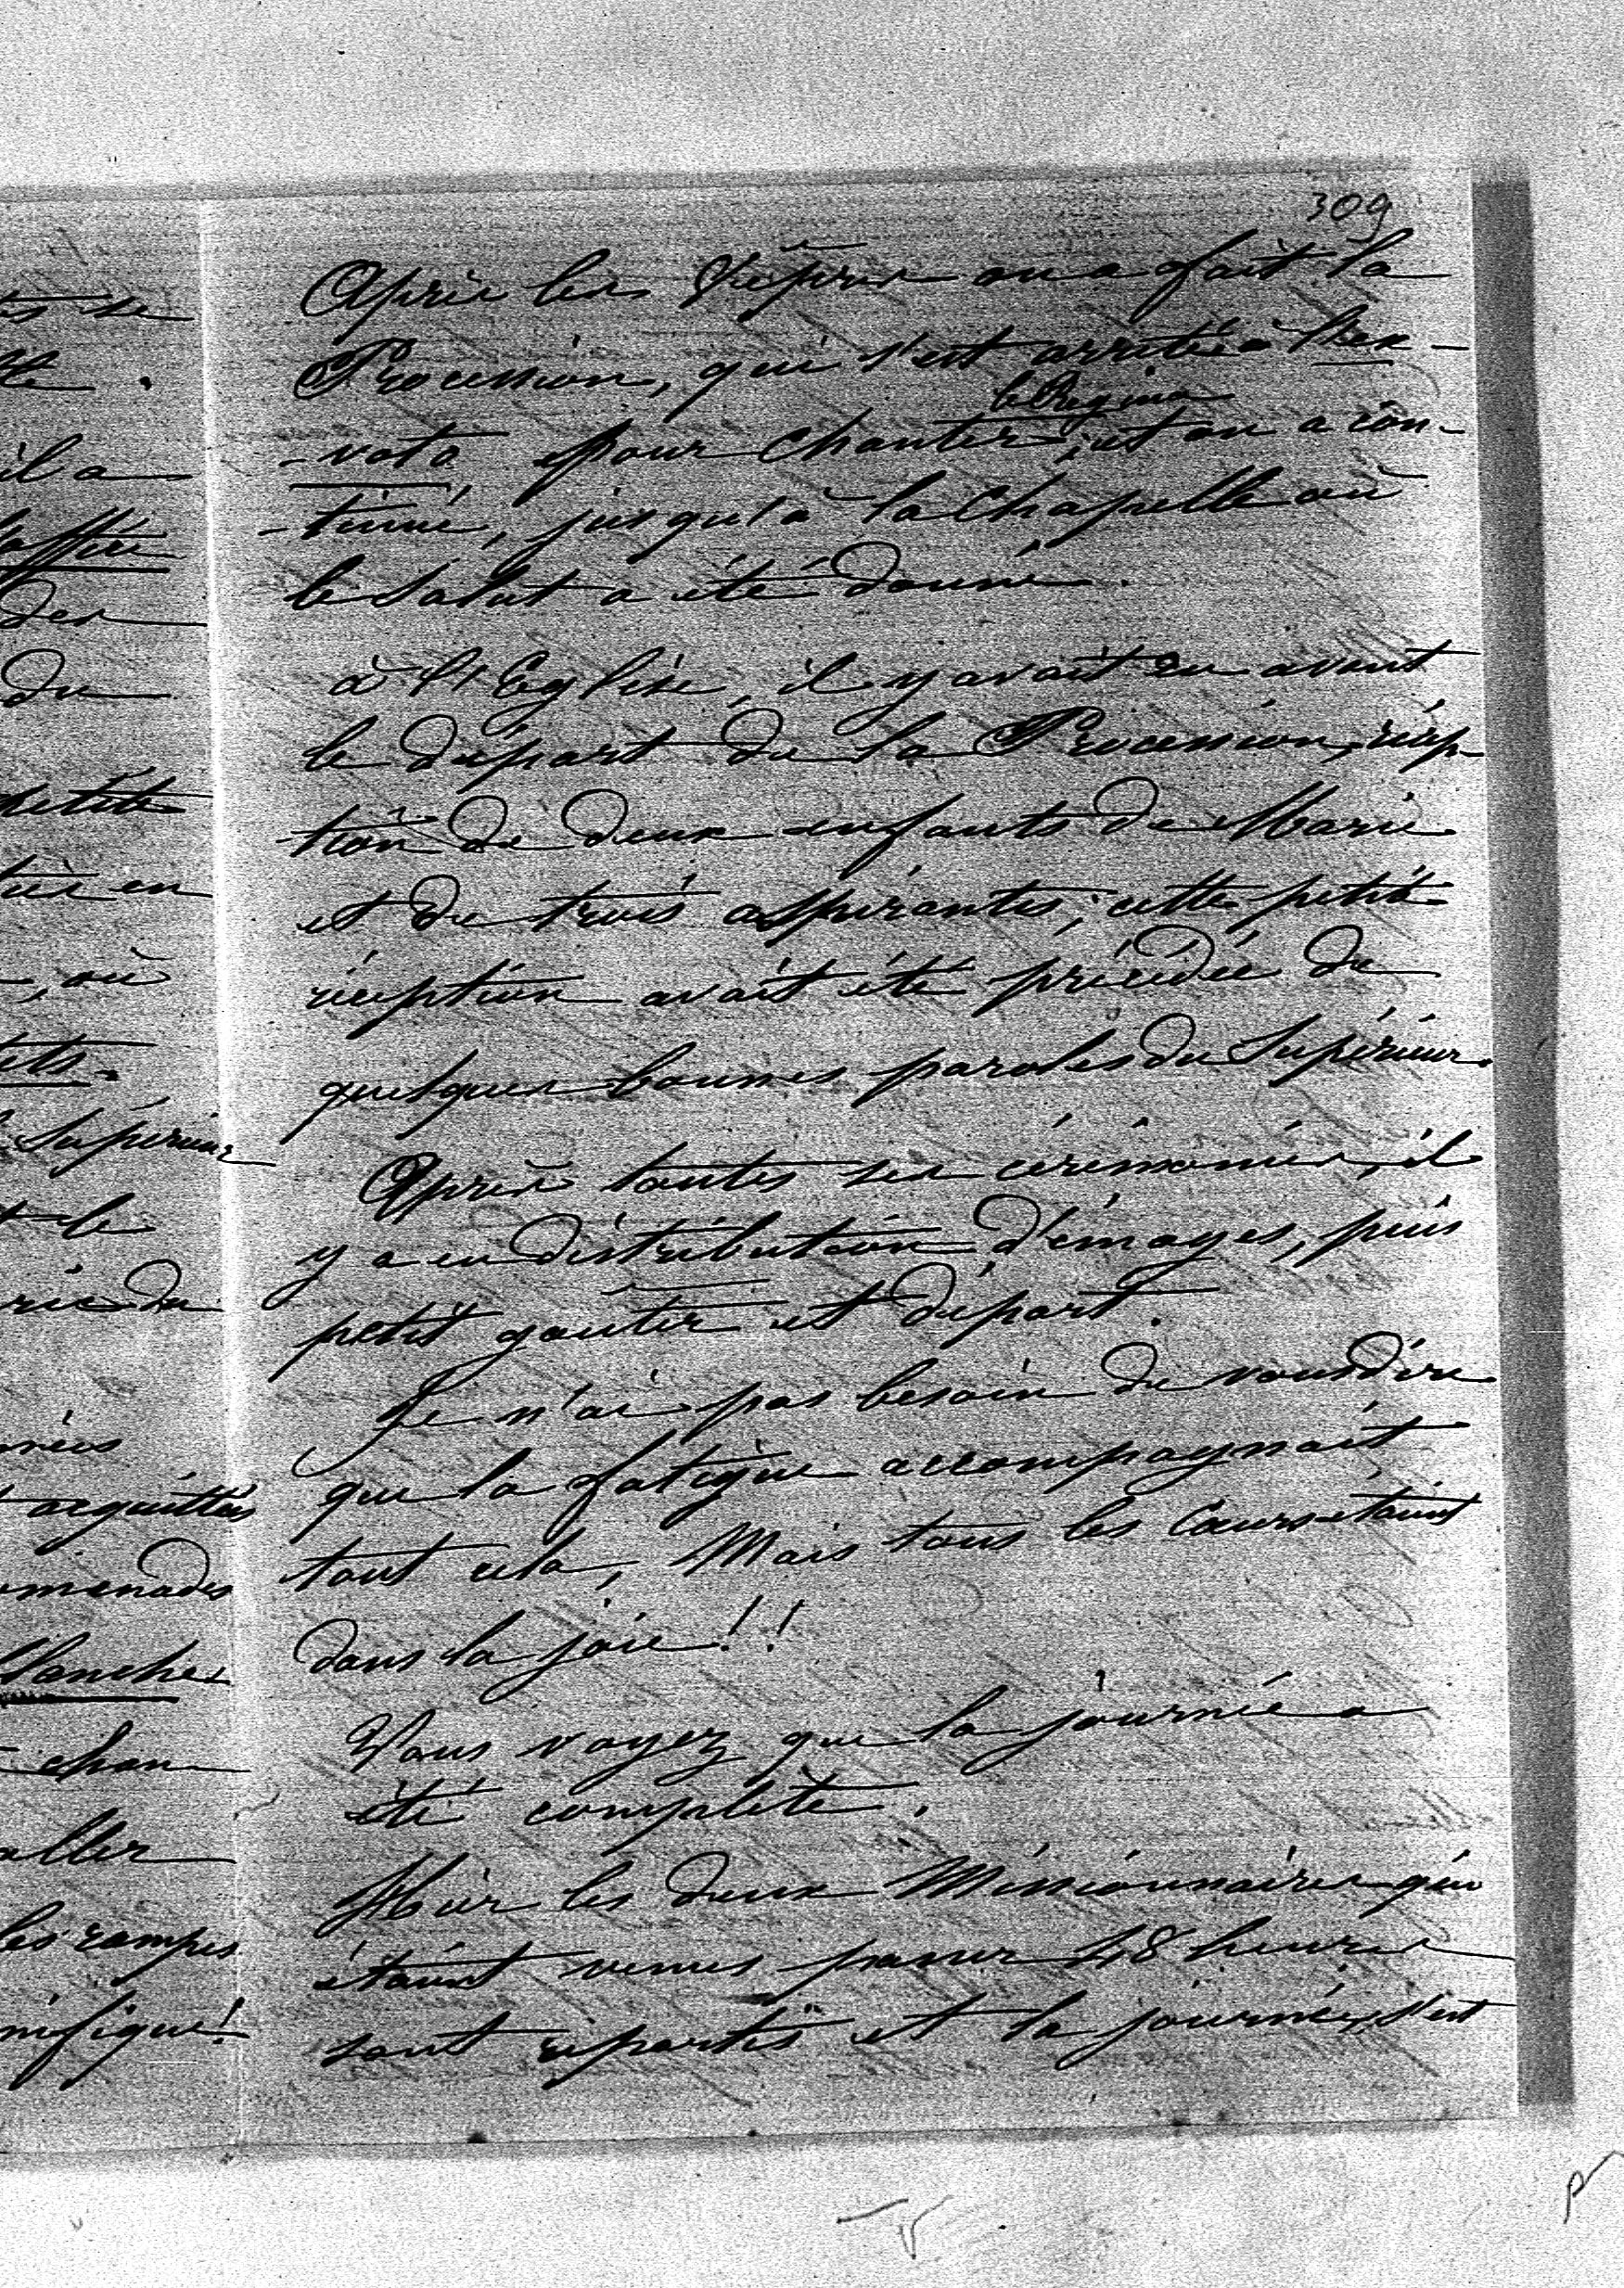 309
Après les Vêpres on a fait la
Procession, qui s'est arrêtée à l'ex-
le Regina
-voto pour chanter, et on a con-
-tinué, jusqu'à la Chapelle où
le Salut a été donné.
à l'Eglise, il y avait eu avant
le départ de la Procession, récep-
tion de deux enfants de Marie
et de trois aspirantes; cette petite
réception avait été précédée de
quelques bonnes paroles du Supérieur.
Après toutes ses cérémonies, il
y a eu distribution d'images, puis
petit goûter et départ.
Je n'ai pas besoin de vous dire
que la fatigue accompagnait
tout cela, Mais tous les Coeurs étaient
dans la joie!!
Vous voyez que la journée a
été complète.
Hier les deux Missionnaires qui
étaient venus passer 48 heures
sont repartis et la journée s'est
il a
des
du
petite
en
, où
Supérieur
le
du
acquittées
blanches
chan
aller
les rampes